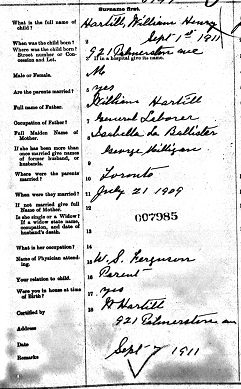 Surname first.
What is the full name of child?
1 Hartill, William Henry
When was the child born?
2 Sept 1st 1911
Where was the child born? Street number or Concession and Lot.
3 If in a hospital give its name.
921 Palmerston ave
Male or Female.
4 M
Are the parents married?
5 yes
Full name of Father.
6 William Hartill
Occupation of Father?
7 General Laborer
Full Maiden Name of Mother.
8 Isabella La Ballister
If she has been more than once married give names of former husband, or husbands.
9 George Milligan
Where were the parents married?
10 Toronto
When were they married?
11 July 21 1909
If not married give full Name of Mother.
12
Is she single or a Widow? If a widow state name, occupation, and date of husband's death.
13
007985
What is her occupation?
14
Name of Physician attending.
15 W. S. Ferguson
Your relation to child.
16 Parent
Were you in house at time of Birth?
17 yes
Certified by
18 W Hartill
Address
921 Palmerston av
Date
Sept 7 1911
Remarks